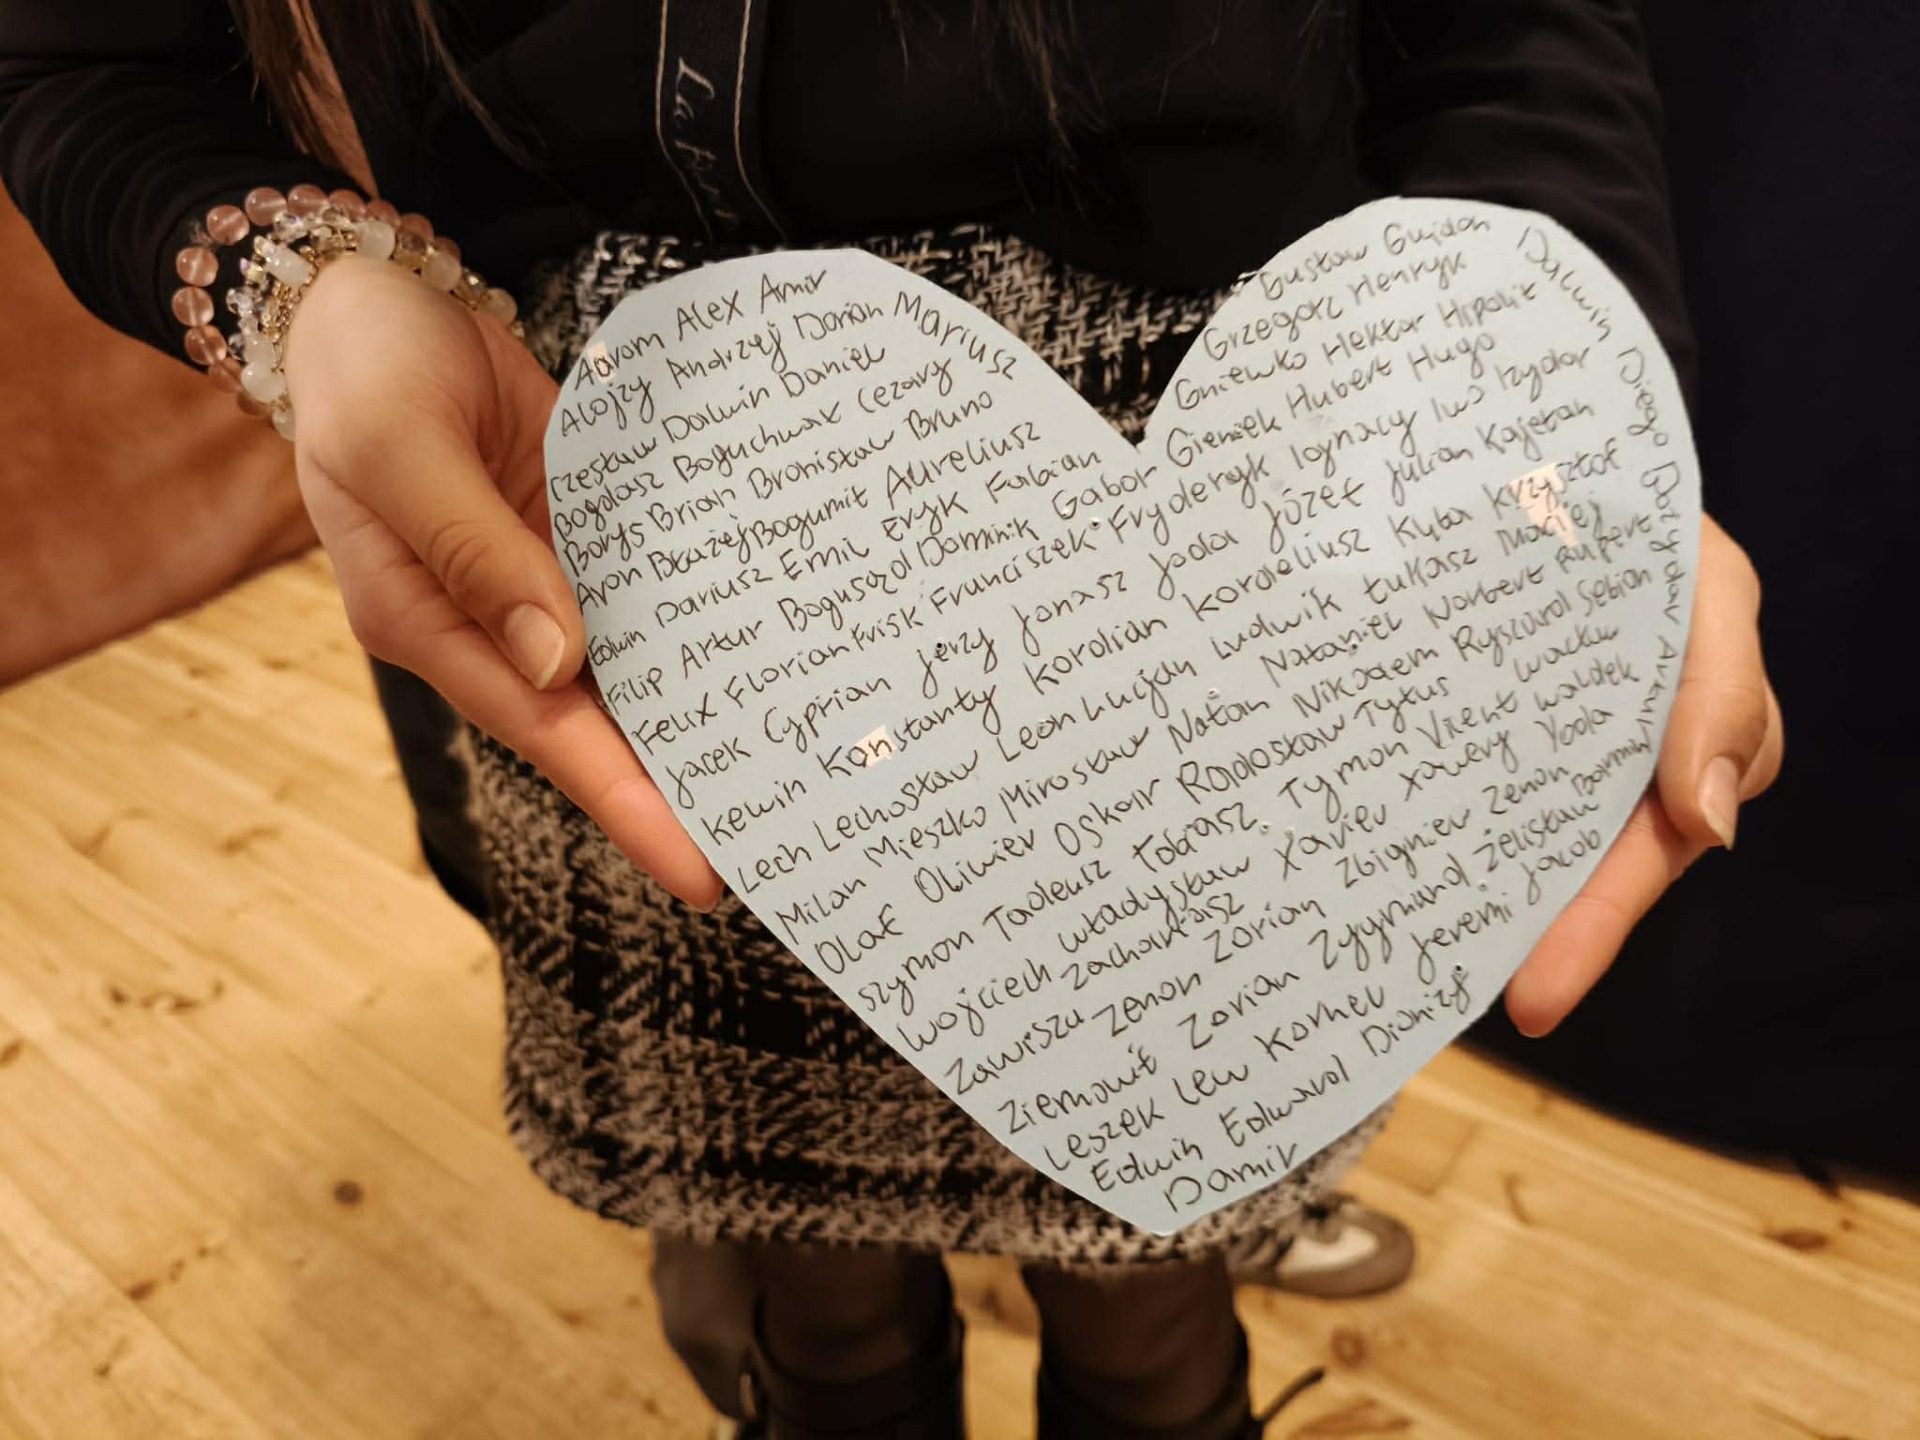 Aarom Alex Amir
Alojzy Andrzej Dorian Mariusz
Czesław Dalwin Daniel
Bogdasz Boguchwał Cezary
Borys Brian Bronisław Bruno
Aron Błażej Bogumił Aureliusz
Edwin Dariusz Emil Eryk Fabian
Filip Artur Bogusąd Dominik Gabor Gieniek Hubert Hugo
Felix Florian Frisk Franciszek Fryderyk Ignacy Iwo Izydor
Jacek Cyprian Jerzy Jonasz Joda Józef Julian Kajetan
Kewin Konstanty Korolian Kordeliusz Kuba Krzysztof
Lech Lechosław Leon Lucjan Ludwik Łukasz Maciej
Milan Mieszko Mirosław Natan Nataniel Norbert Rupert
Olaf Oliwier Oskar Radosław Nikodem Ryszard Sebian
Szymon Tadeusz Tobiasz Tytus Wacław
Wojciech Władysław Tymon Vicent Waldek
Zachariasz Xavier Xawery Yoda
Zawisza Zenon Zorian Zbigniew Zenon
Ziemowit Zorian Zygmund Żelisław
Leszek Lew Kornel Jeremi Jacob
Edwin Edward Dionizy
Damir
Gustaw Gwidon
Grzegorz Henryk
Gniewko Hektor Hipolit
Diego